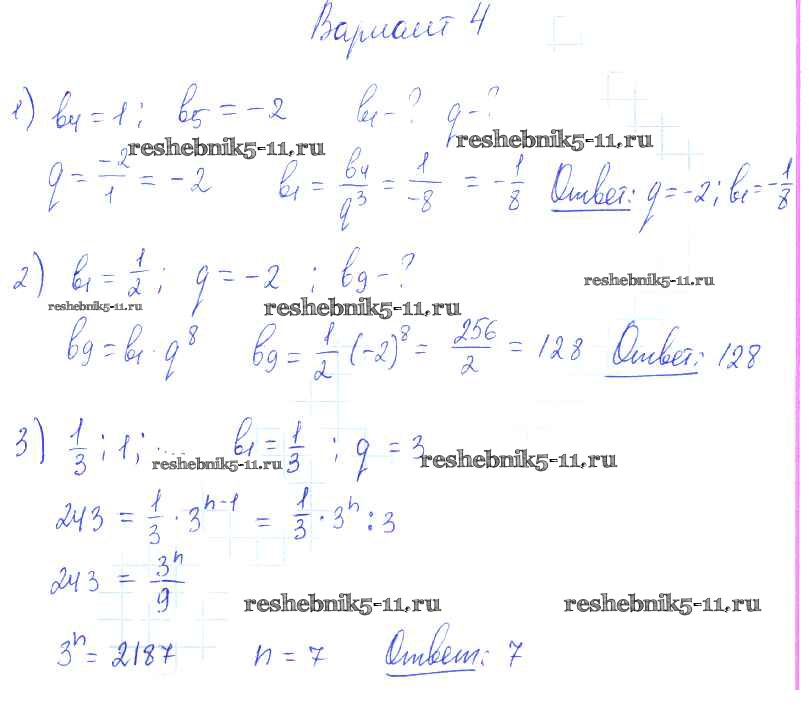 Вариант 4
1) b₄ = 1; b₅ = -2 b₁ - ? q - ?
reshebnik5-11.ru reshebnik5-11.ru
q = -2/1 = -2 b₁ = b₄/q³ = 1/-8 = -1/8 Ответ: q = -2; b₁ = -1/8
2) b₁ = 1/2; q = -2; b₉ - ?
reshebnik5-11.ru reshebnik5-11.ru reshebnik5-11.ru
b₉ = b₁ · q⁸ b₉ = 1/2 (-2)⁸ = 256/2 = 128 Ответ: 128
3) 1/3; 1; .... b₁ = 1/3; q = 3
reshebnik5-11.ru reshebnik5-11.ru
243 = 1/3 · 3ⁿ⁻¹ = 1/3 · 3ⁿ : 3
243 = 3ⁿ/9
reshebnik5-11.ru reshebnik5-11.ru
3ⁿ = 2187 n = 7 Ответ: 7